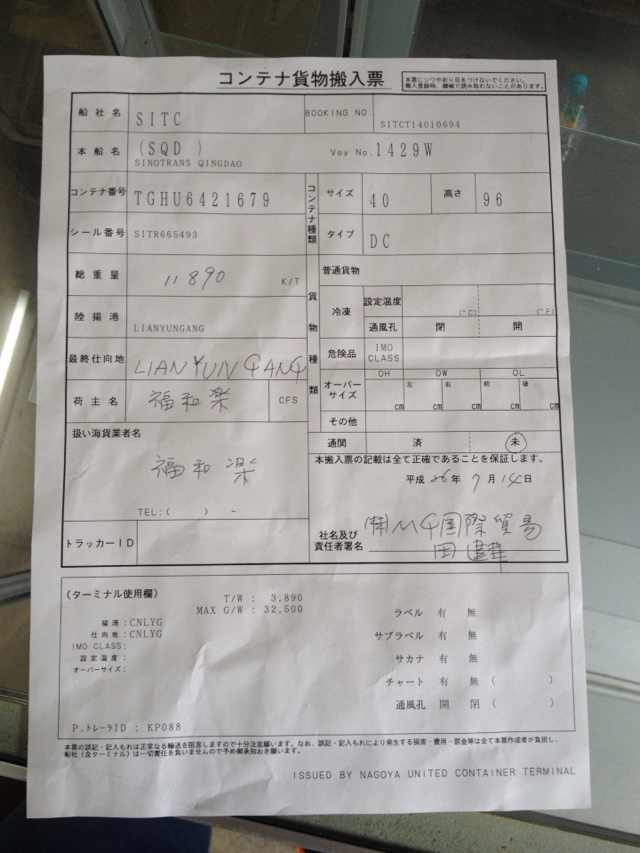 コンテナ貨物搬入票
本票にシワや折り目をつけないでください。
搬入登録時、機械で読み取れないことがあります。
船社名 SITC BOOKING NO SITCT14010694
本船名 (SQD )
SINOTRANS QINGDAO Voy No. 1429W
コンテナ番号 TGHU6421679 コンテナ種類 サイズ 40 高さ 96
シール番号 SITR665493 タイプ DC
総重量 11890 K/T 貨物種類 普通貨物
陸揚港 LIANYUNGANG 冷凍 設定温度 (℃) (℉)
通風孔 閉 開
最終仕向地 LIANYUNGANG 危険品 IMO CLASS
荷主名 福和楽 CFS オーバーサイズ OH OW OL
左 右 前 後
cm cm cm cm cm
その他
扱い海貨業者名 通関 済 未
福和楽
本搬入票の記載は全て正確であることを保証します。
平成 26年 7月 14日
TEL:( ) -
トラッカーID
社名及び
責任者署名 ㈲MG国際貿易
(ターミナル使用欄)
T/W : 3,890
MAX G/W : 32,500
揚港 : CNLYG
仕向地 : CNLYG
IMO CLASS:
設定温度 :
オーバーサイズ:
ラベル 有 無
サブラベル 有 無
サカナ 有 無
チャート 有 無 ( )
通風孔 開 閉 ( )
P.トレーラID : KP088
本票の誤記・記入もれは正常なる輸送を阻害しますので十分注意願います。なお、誤記・記入もれにより発生する損害・費用・罰金等は全て本票作成者が負担し、
船社(含ターミナル)は一切責任を負いませんので予め御承知おき願います。
ISSUED BY NAGOYA UNITED CONTAINER TERMINAL